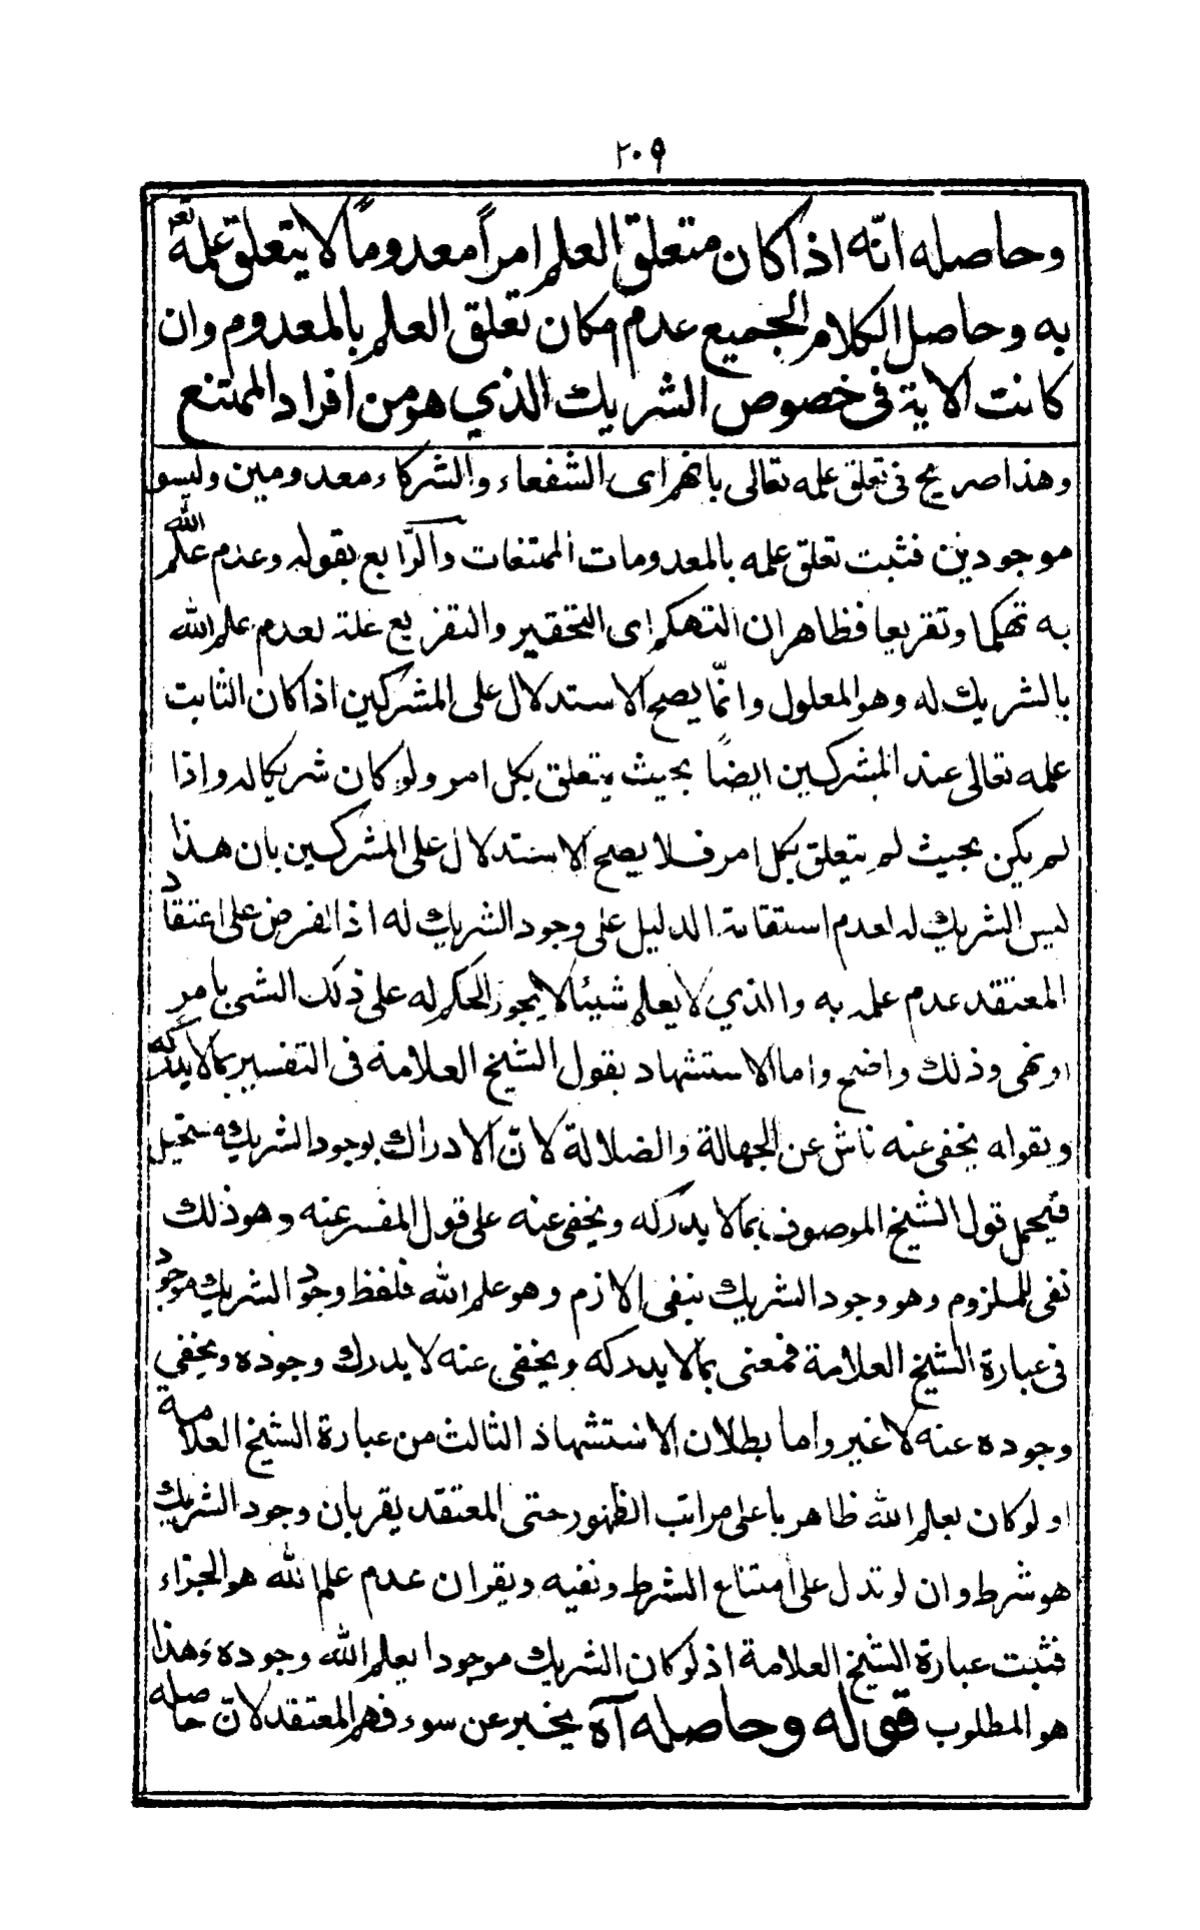 ٢٠٩
وحاصله انّه اذا كان متعلق العلم امراً معدوماً لا يتعلق علمه تع
به وحاصل الكلام الجميع عدم امكان تعلق العلم بالمعدوم وان
كانت الاية فى خصوص الشريك الذي هو من افراد الممتنع
وهذا صريح فى تعلق علمه تعالى بانهم اى الشفعاء والشركاء معدومين وليسو
موجودين فثبت تعلق علمه بالمعدومات الممتنعات والرّابع بقوله وعدم علم الله
به تهكما وتقريعا فظاهر ان التهكم اى التحقير والتقريع علة لعدم علم الله
بالشريك له وهو المعلول وانّما يصح الاستدلال على المشركين اذا كان الثابت
علمه تعالى عند المشركين ايضاً بحيث يتعلق بكل امر ولو كان شريكا له واذا
لم يكن بحيث لم يتعلق بكل امر فلا يصح الاستدلال على المشركين بان هذا
ليس الشريك له لعدم استقامة الدليل على وجود الشريك له اذ الفرض على اعتقاد
المعتقد عدم علمه به والذي لا يعلم شيئا لا يجوز الحكم له على ذلك الشئ بامر
او نهى وذلك واضح واما الاستشهاد بقول الشيخ العلامة فى التفسير بما لا يدركه
وبقوله يخفى عنه ناش عن الجهالة والضلالة لانّ الادراك بوجود الشريك مستحيل
فيحمل قول الشيخ الموصوف بما لا يدركه ويخفى عنه على قول المفسر عنه وهو ذلك
نفى للملزوم وهو وجود الشريك بنفى الازم وهو علم الله فلفظ وجود الشريك موجود
فى عبارة الشيخ العلامة فمعنى بما لا يدركه ويخفى عنه لا يدرك وجوده ويخفي
وجوده عنه لا غير واما بطلان الاستشهاذ الثالث من عبارة الشيخ العلامة
او لو كان يعلم الله ظاهر باعلى مراتب الظهور حتى المعتقد يقر بان وجود الشريك
هو شرط وان لو تدل على امتناع الشرط ونفيه ويقر ان عدم علم الله هو الجزاء
فثبت عبارة الشيخ العلامة اذ لو كان الشريك موجودا يعلم الله وجوده وهذا
هو المطلوب قوله وحاصله آه يخبر عن سوء فهم المعتقد لانّ حاصله